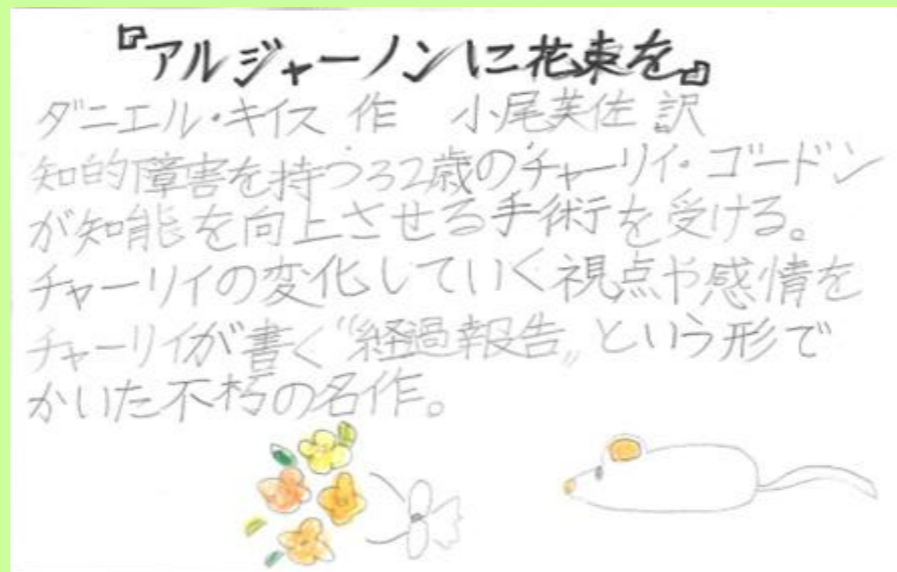 『アルジャーノンに花束を』
ダニエル・キイス 作　小尾芙佐 訳
知的障害を持つ32歳のチャーリイ・ゴードン
が知能を向上させる手術を受ける。
チャーリイの変化していく視点や感情を
チャーリイが書く〝経過報告〟という形で
かいた不朽の名作。